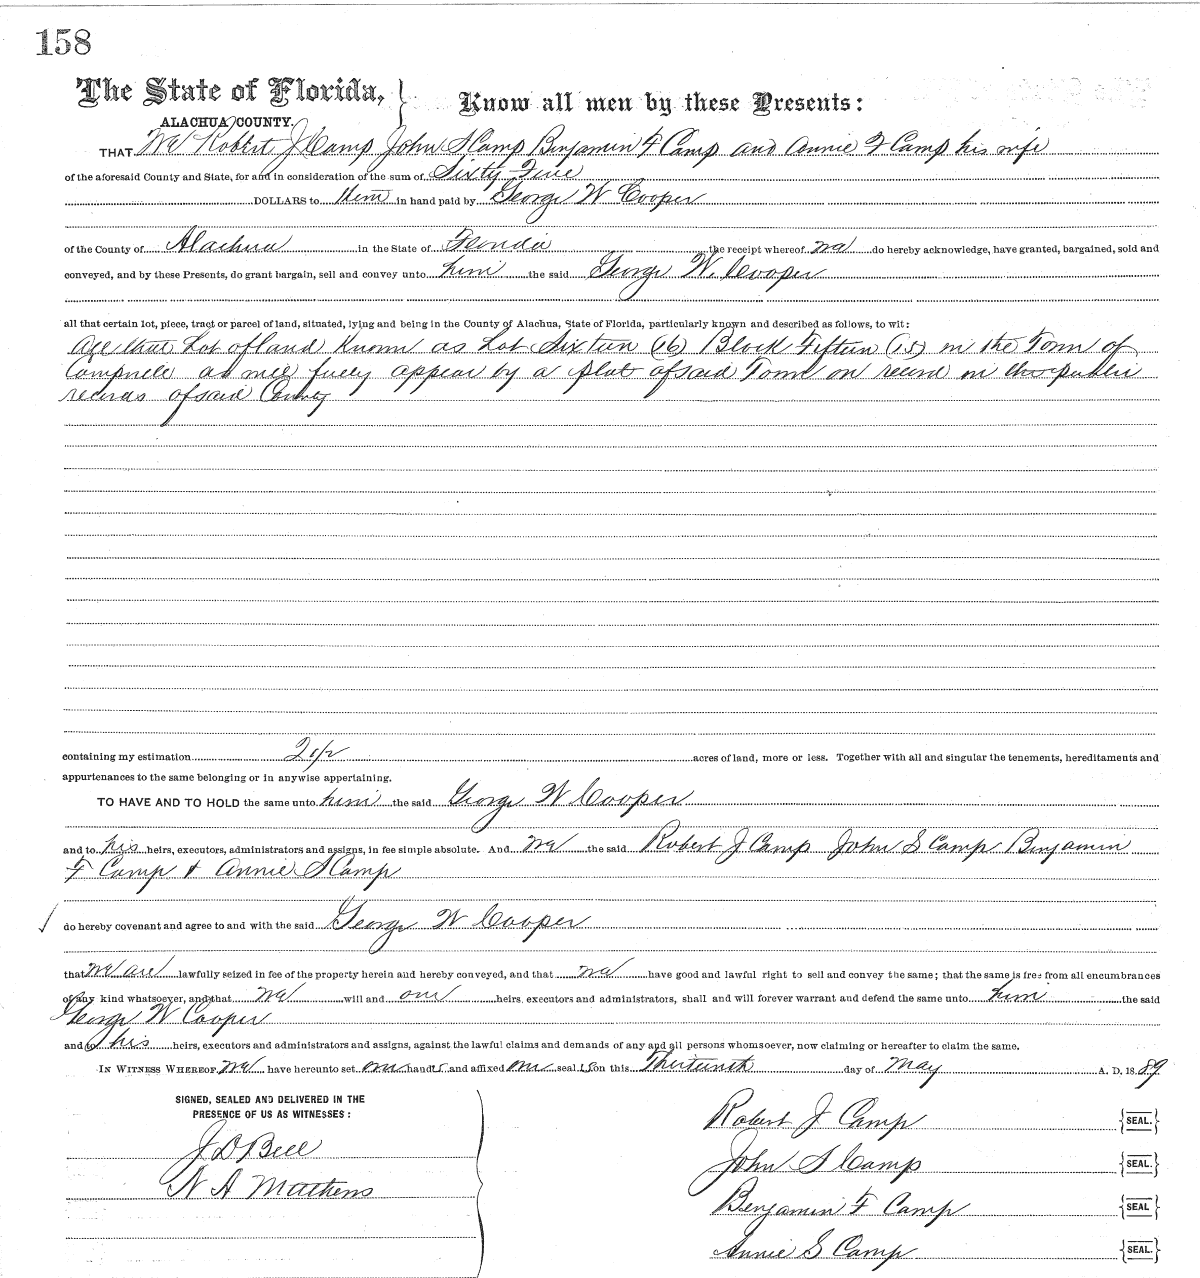 158
The State of Florida, Know all men by these Presents:
ALACHUA COUNTY.
THAT We Robert J Camp John S Camp Benjamin F Camp and Annie F Camp his wife
of the aforesaid County and State, for and in consideration of the sum of Sixty Five
DOLLARS to them in hand paid by George W Cooper
of the County of Alachua in the State of Florida the receipt whereof we do hereby acknowledge, have granted, bargained, sold and
conveyed, and by these Presents, do grant bargain, sell and convey unto him the said George W. Cooper
all that certain lot, piece, tract or parcel of land, situated, lying and being in the County of Alachua, State of Florida, particularly known and described as follows, to wit:
All that Lot of land Known as Lot Sixteen (16) Block Fifteen (15) in the Town of
Campville as will fully appear by a plat of said Town on record in the public
records of said County
containing my estimation 2 1/2 acres of land, more or less. Together with all and singular the tenements, hereditaments and
appurtenances to the same belonging or in anywise appertaining.
TO HAVE AND TO HOLD the same unto him the said George W Cooper
and to his heirs, executors, administrators and assigns, in fee simple absolute. And we the said Robert J Camp John S Camp Benjamin
F Camp & Annie S Camp
do hereby covenant and agree to and with the said George W Cooper
that we are lawfully seized in fee of the property herein and hereby conveyed, and that we have good and lawful right to sell and convey the same; that the same is free from all encumbrances
of any kind whatsoever, and that we will and our heirs, executors and administrators, shall and will forever warrant and defend the same unto him the said
George W Cooper
and to his heirs, executors and administrators and assigns, against the lawful claims and demands of any and all persons whomsoever, now claiming or hereafter to claim the same.
IN WITNESS WHEREOF we have hereunto set our hands and affixed our seals on this Thirteenth day of May A. D. 1889
SIGNED, SEALED AND DELIVERED IN THE
PRESENCE OF US AS WITNESSES:
J D Bell
N A Mathens
Robert J Camp SEAL.
John S Camp SEAL.
Benjamin F Camp SEAL
Annie S Camp SEAL.